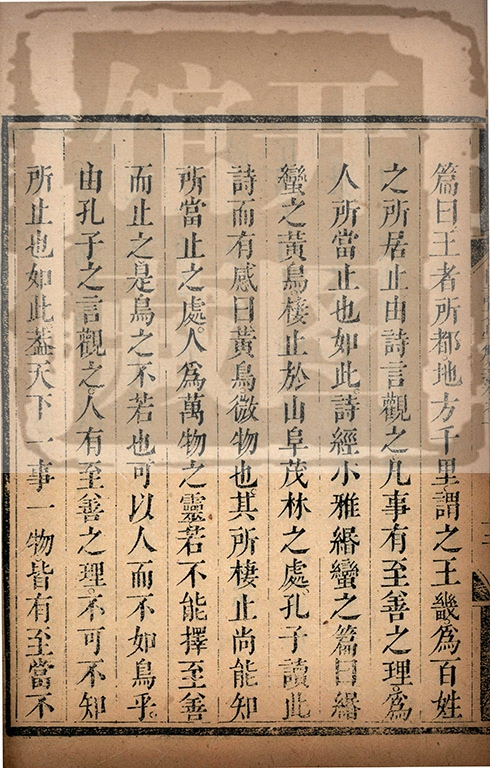 篇曰王者所都地方千里謂之王畿爲百姓
之所居止由詩言觀之凡事有至善之理爲
人所當止也如此詩經小雅緡蠻之篇曰緡
蠻之黃鳥棲止於山阜茂林之處孔子讀此
詩而有感曰黃鳥微物也其所棲止尚能知
所當止之處人爲萬物之靈若不能擇至善
而止之是鳥之不若也可以人而不如鳥乎
由孔子之言觀之人有至善之理不可不知
所止也如此蓋天下一事一物皆有至當不